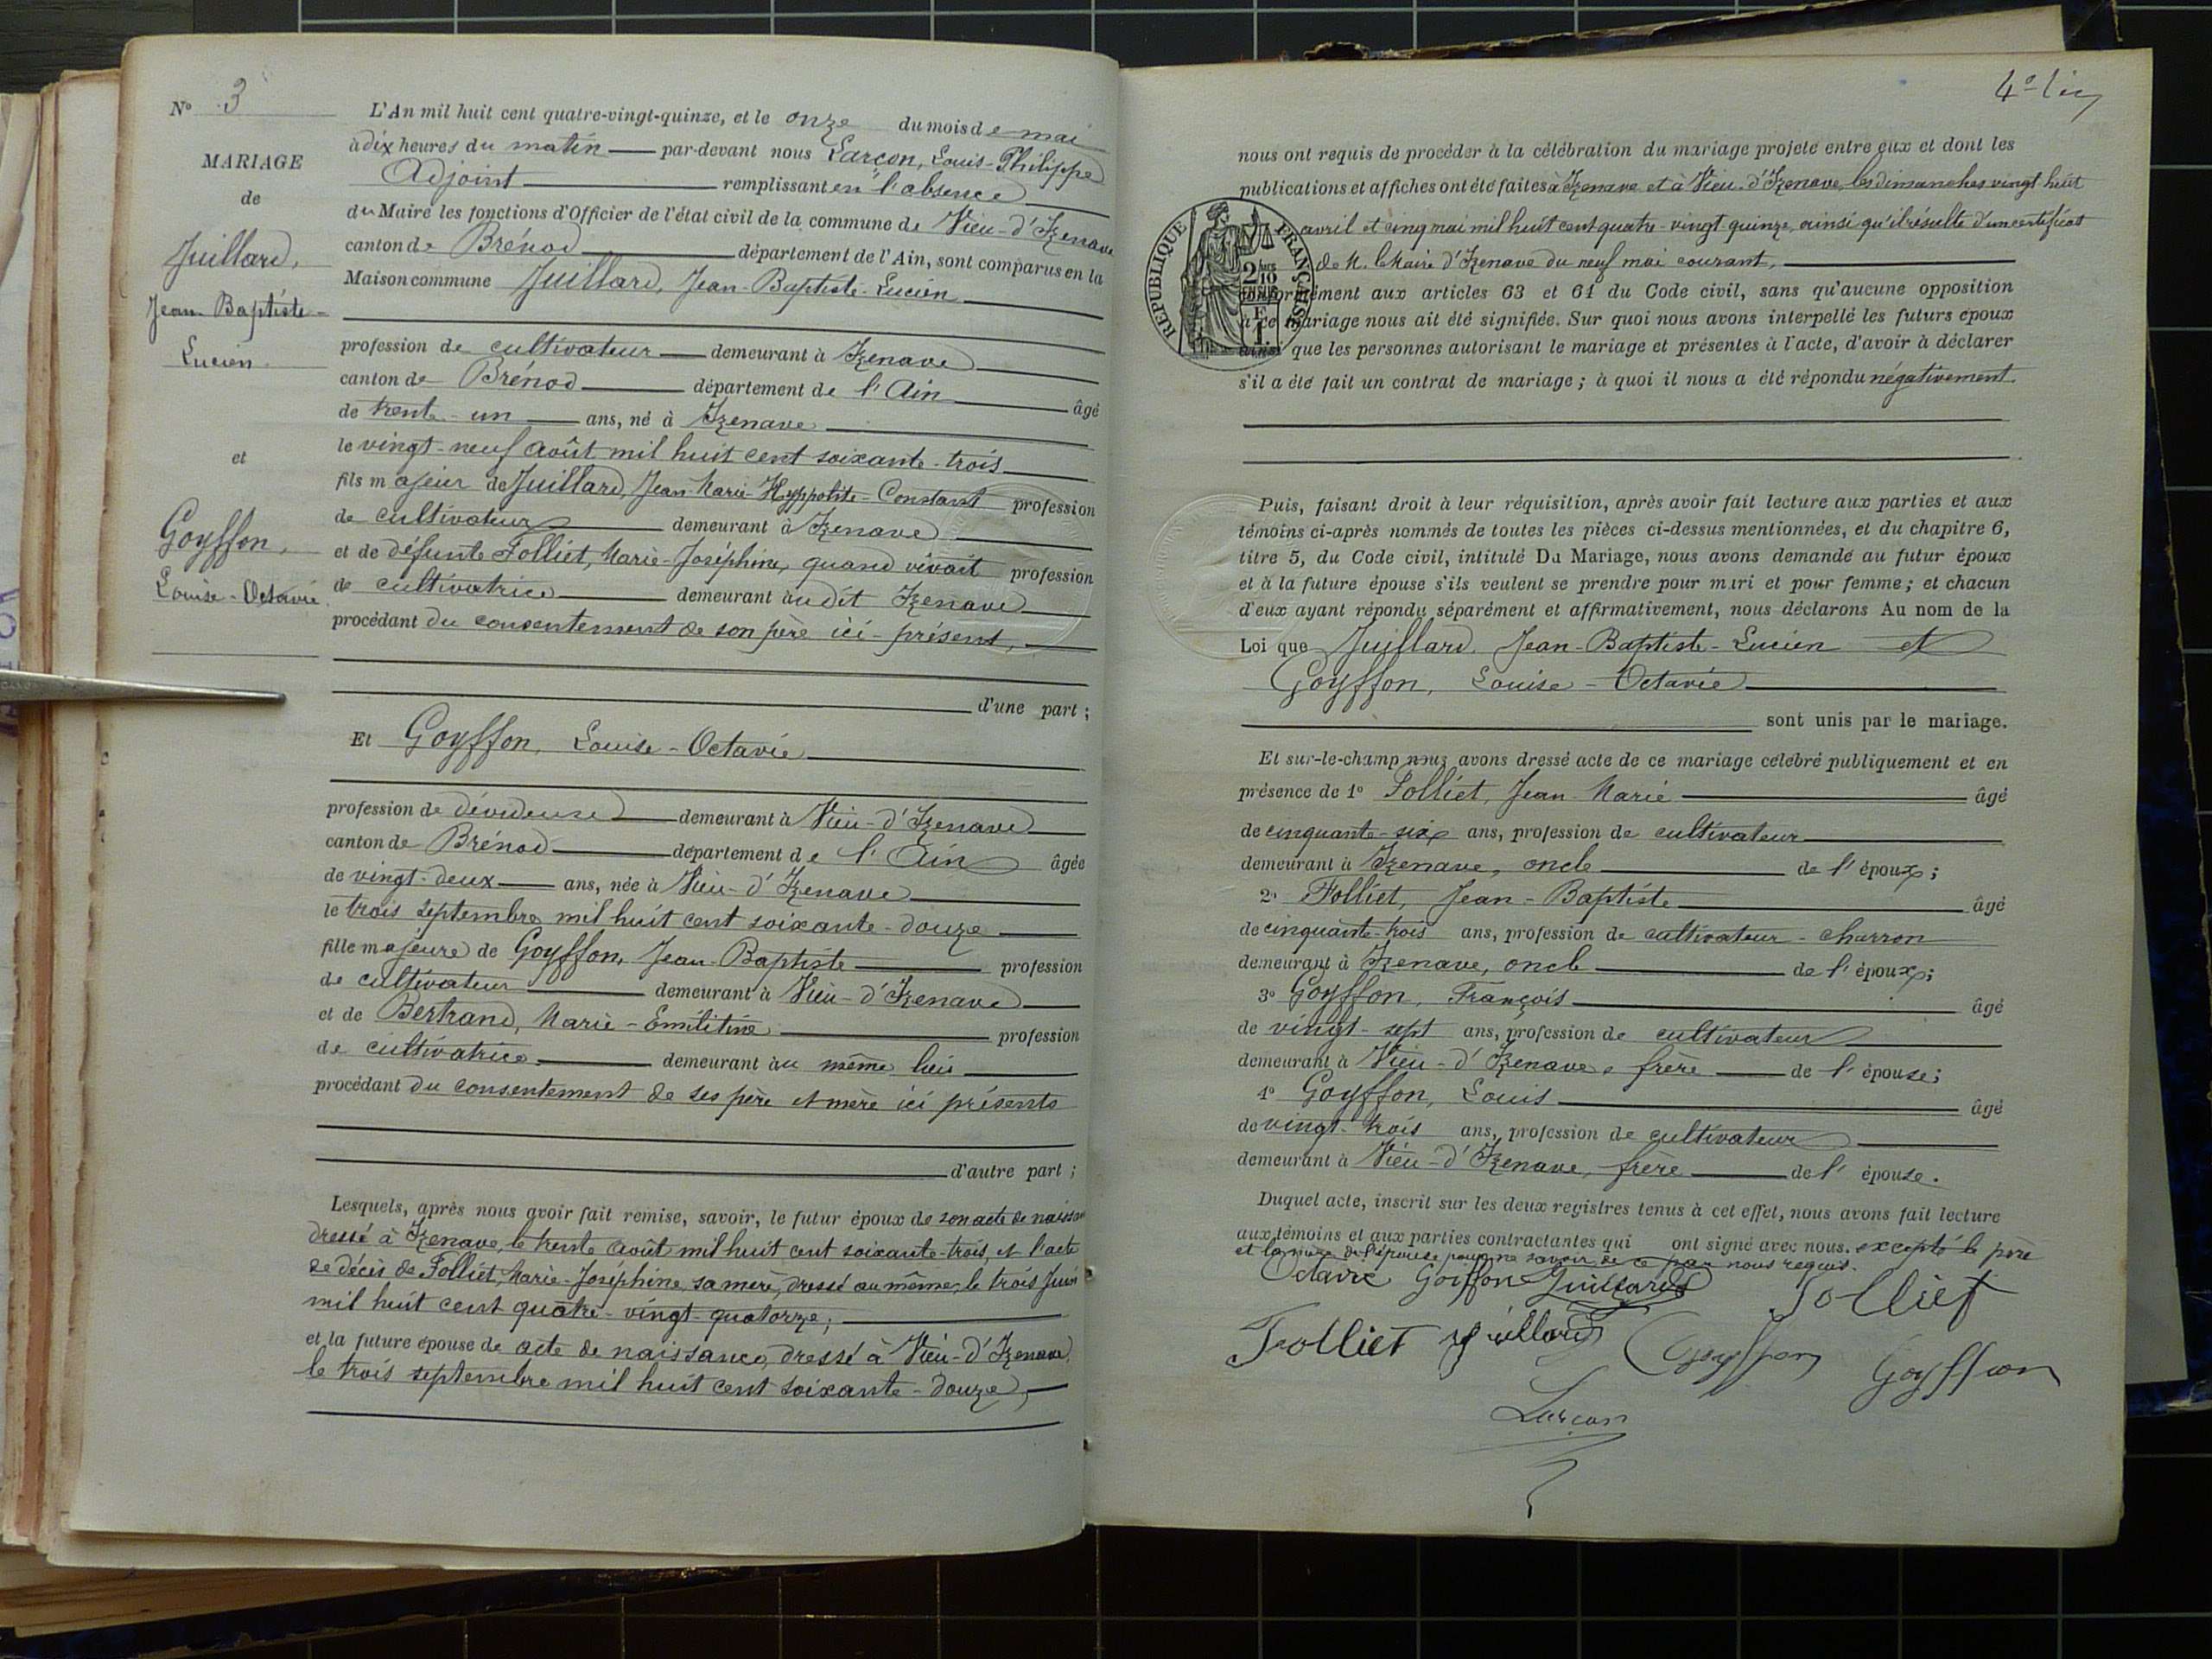 N° 3
MARIAGE
de
Juillard,
Jean-Baptiste-
Lucien.
et
Goyffon,
Louise-Octavie.
L'An mil huit cent quatre-vingt-quinze, et le onze du mois de mai
à dix heures du matin par-devant nous Larçon, Louis-Philippe
Adjoint remplissant en l'absence
du Maire les fonctions d'Officier de l'état civil de la commune de Vieu-d'Izenave
canton de Brénod département de l'Ain, sont comparus en la
Maison commune Juillard, Jean-Baptiste-Lucien
profession de cultivateur demeurant à Izenave
canton de Brénod département de l'Ain âgé
de trente-un ans, né à Izenave
le vingt-neuf août mil huit cent soixante-trois
fils majeur de Juillard, Jean-Marie-Hyppolite-Constant profession
de cultivateur demeurant à Izenave
et de défunte Folliet, Marie-Joséphine, quand vivait profession
de cultivatrice demeurant àudit Izenave
procédant du consentement de son père ici-présent,
d'une part ;
Et Goyffon, Louise-Octavie
profession de dévideuse demeurant à Vieu-d'Izenave
canton de Brénod département de l'Ain âgée
de vingt-deux ans, née à Vieu-d'Izenave
le trois septembre mil huit cent soixante-douze
fille majeure de Goyffon, Jean-Baptiste profession
de cultivateur demeurant à Vieu-d'Izenave
et de Bertrand, Marie-Emilitine profession
de cultivatrice demeurant àu même lieu
procédant du consentement de ses père et mère ici présents
d'autre part ;
Lesquels, après nous avoir fait remise, savoir, le futur époux de son acte de naissance
dressé à Izenave, le trente août mil huit cent soixante-trois, et l'acte
de décès de Folliet, Marie-Joséphine, sa mère, dressé au même, le trois Juin
mil huit cent quatre-vingt-quatorze,
et la future épouse de acte de naissance, dressé à Vieu-d'Izenave,
le trois septembre mil huit cent soixante-douze,
nous ont requis de procéder à la célébration du mariage projeté entre eux et dont les
publications et affiches ont été faites à Izenave et à Vieu-d'Izenave, les dimanches vingt huit
avril et cinq mai mil huit cent quatre-vingt-quinze, ainsi qu'il résulte d'un certificat
de M. le Maire d'Izenave du neuf mai courant,
RÉPUBLIQUE FRANÇAISE
conformément aux articles 63 et 64 du Code civil, sans qu'aucune opposition
à ce mariage nous ait été signifiée. Sur quoi nous avons interpellé les futurs époux
ainsi que les personnes autorisant le mariage et présentes à l'acte, d'avoir à déclarer
s'il a été fait un contrat de mariage ; à quoi il nous a été répondu négativement.
Puis, faisant droit à leur réquisition, après avoir fait lecture aux parties et aux
témoins ci-après nommés de toutes les pièces ci-dessus mentionnées, et du chapitre 6,
titre 5, du Code civil, intitulé Du Mariage, nous avons demandé au futur époux
et à la future épouse s'ils veulent se prendre pour mari et pour femme ; et chacun
d'eux ayant répondu séparément et affirmativement, nous déclarons Au nom de la
Loi que Juillard, Jean-Baptiste-Lucien et
Goyffon, Louise-Octavie
sont unis par le mariage.
Et sur-le-champ nous avons dressé acte de ce mariage célébré publiquement et en
présence de 1° Folliet, Jean-Marie âgé
de cinquante-six ans, profession de cultivateur
demeurant à Izenave, oncle de l'époux ;
2° Folliet, Jean-Baptiste âgé
de cinquante-trois ans, profession de cultivateur-charron
demeurant à Izenave, oncle de l'époux ;
3° Goyffon, François âgé
de vingt-sept ans, profession de cultivateur
demeurant à Vieu-d'Izenave, frère de l'épouse ;
4° Goyffon, Louis âgé
de vingt-trois ans, profession de cultivateur
demeurant à Vieu-d'Izenave, frère de l'épouse.
Duquel acte, inscrit sur les deux registres tenus à cet effet, nous avons fait lecture
aux témoins et aux parties contractantes qui ont signé avec nous. excepté le père
et la mère de l'épouse pour ne savoir de ce par nous requis.
Octavie Goyffon Juillard Folliet
Folliet Juillard Goyffon Goyffon
Larçon